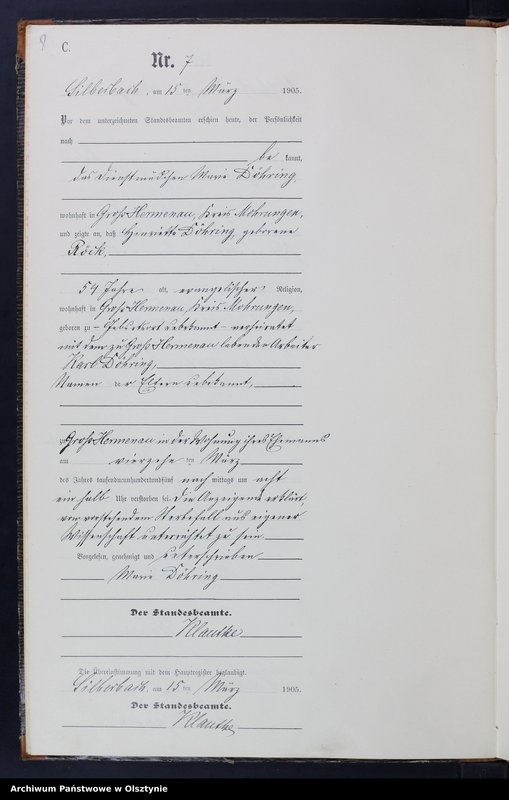 8
C.
Nr. 7
Silberbach, am 15 ten März 1905.
Vor dem unterzeichneten Standesbeamten erschien heute, der Persönlichkeit
nach
be kannt,
das Dienstmädchen Marie Döhring,
wohnhaft in Groß Hermenau, Kreis Mohrungen,
und zeigte an, daß Henriette Döhring, geborene
Röck,
54 Jahre alt, evangelischer Religion,
wohnhaft in Groß Hermenau, Kreis Mohrungen,
geboren zu – Geburtsort unbekannt – verheiratet
mit dem zu Groß Hermenau lebenden Arbeiter
Karl Döhring,
Namen der Eltern unbekannt,
zu Groß Hermenau in der Wohnung ihres Ehemanns
am vierzehn ten März
des Jahres tausendneunhundertundfünf nach mittags um acht
ein halb Uhr verstorben sei. Die Anzeigende erklärt,
von vorstehendem Sterbefall aus eigener
Wissenschaft unterrichtet zu sein.
Vorgelesen, genehmigt und unterschrieben
Marie Döhring
Der Standesbeamte.
Klautke
Die Übereinstimmung mit dem Hauptregister beglaubigt.
Silberbach, am 15 ten März 1905.
Der Standesbeamte.
Klautke
Archiwum Państwowe w Olsztynie